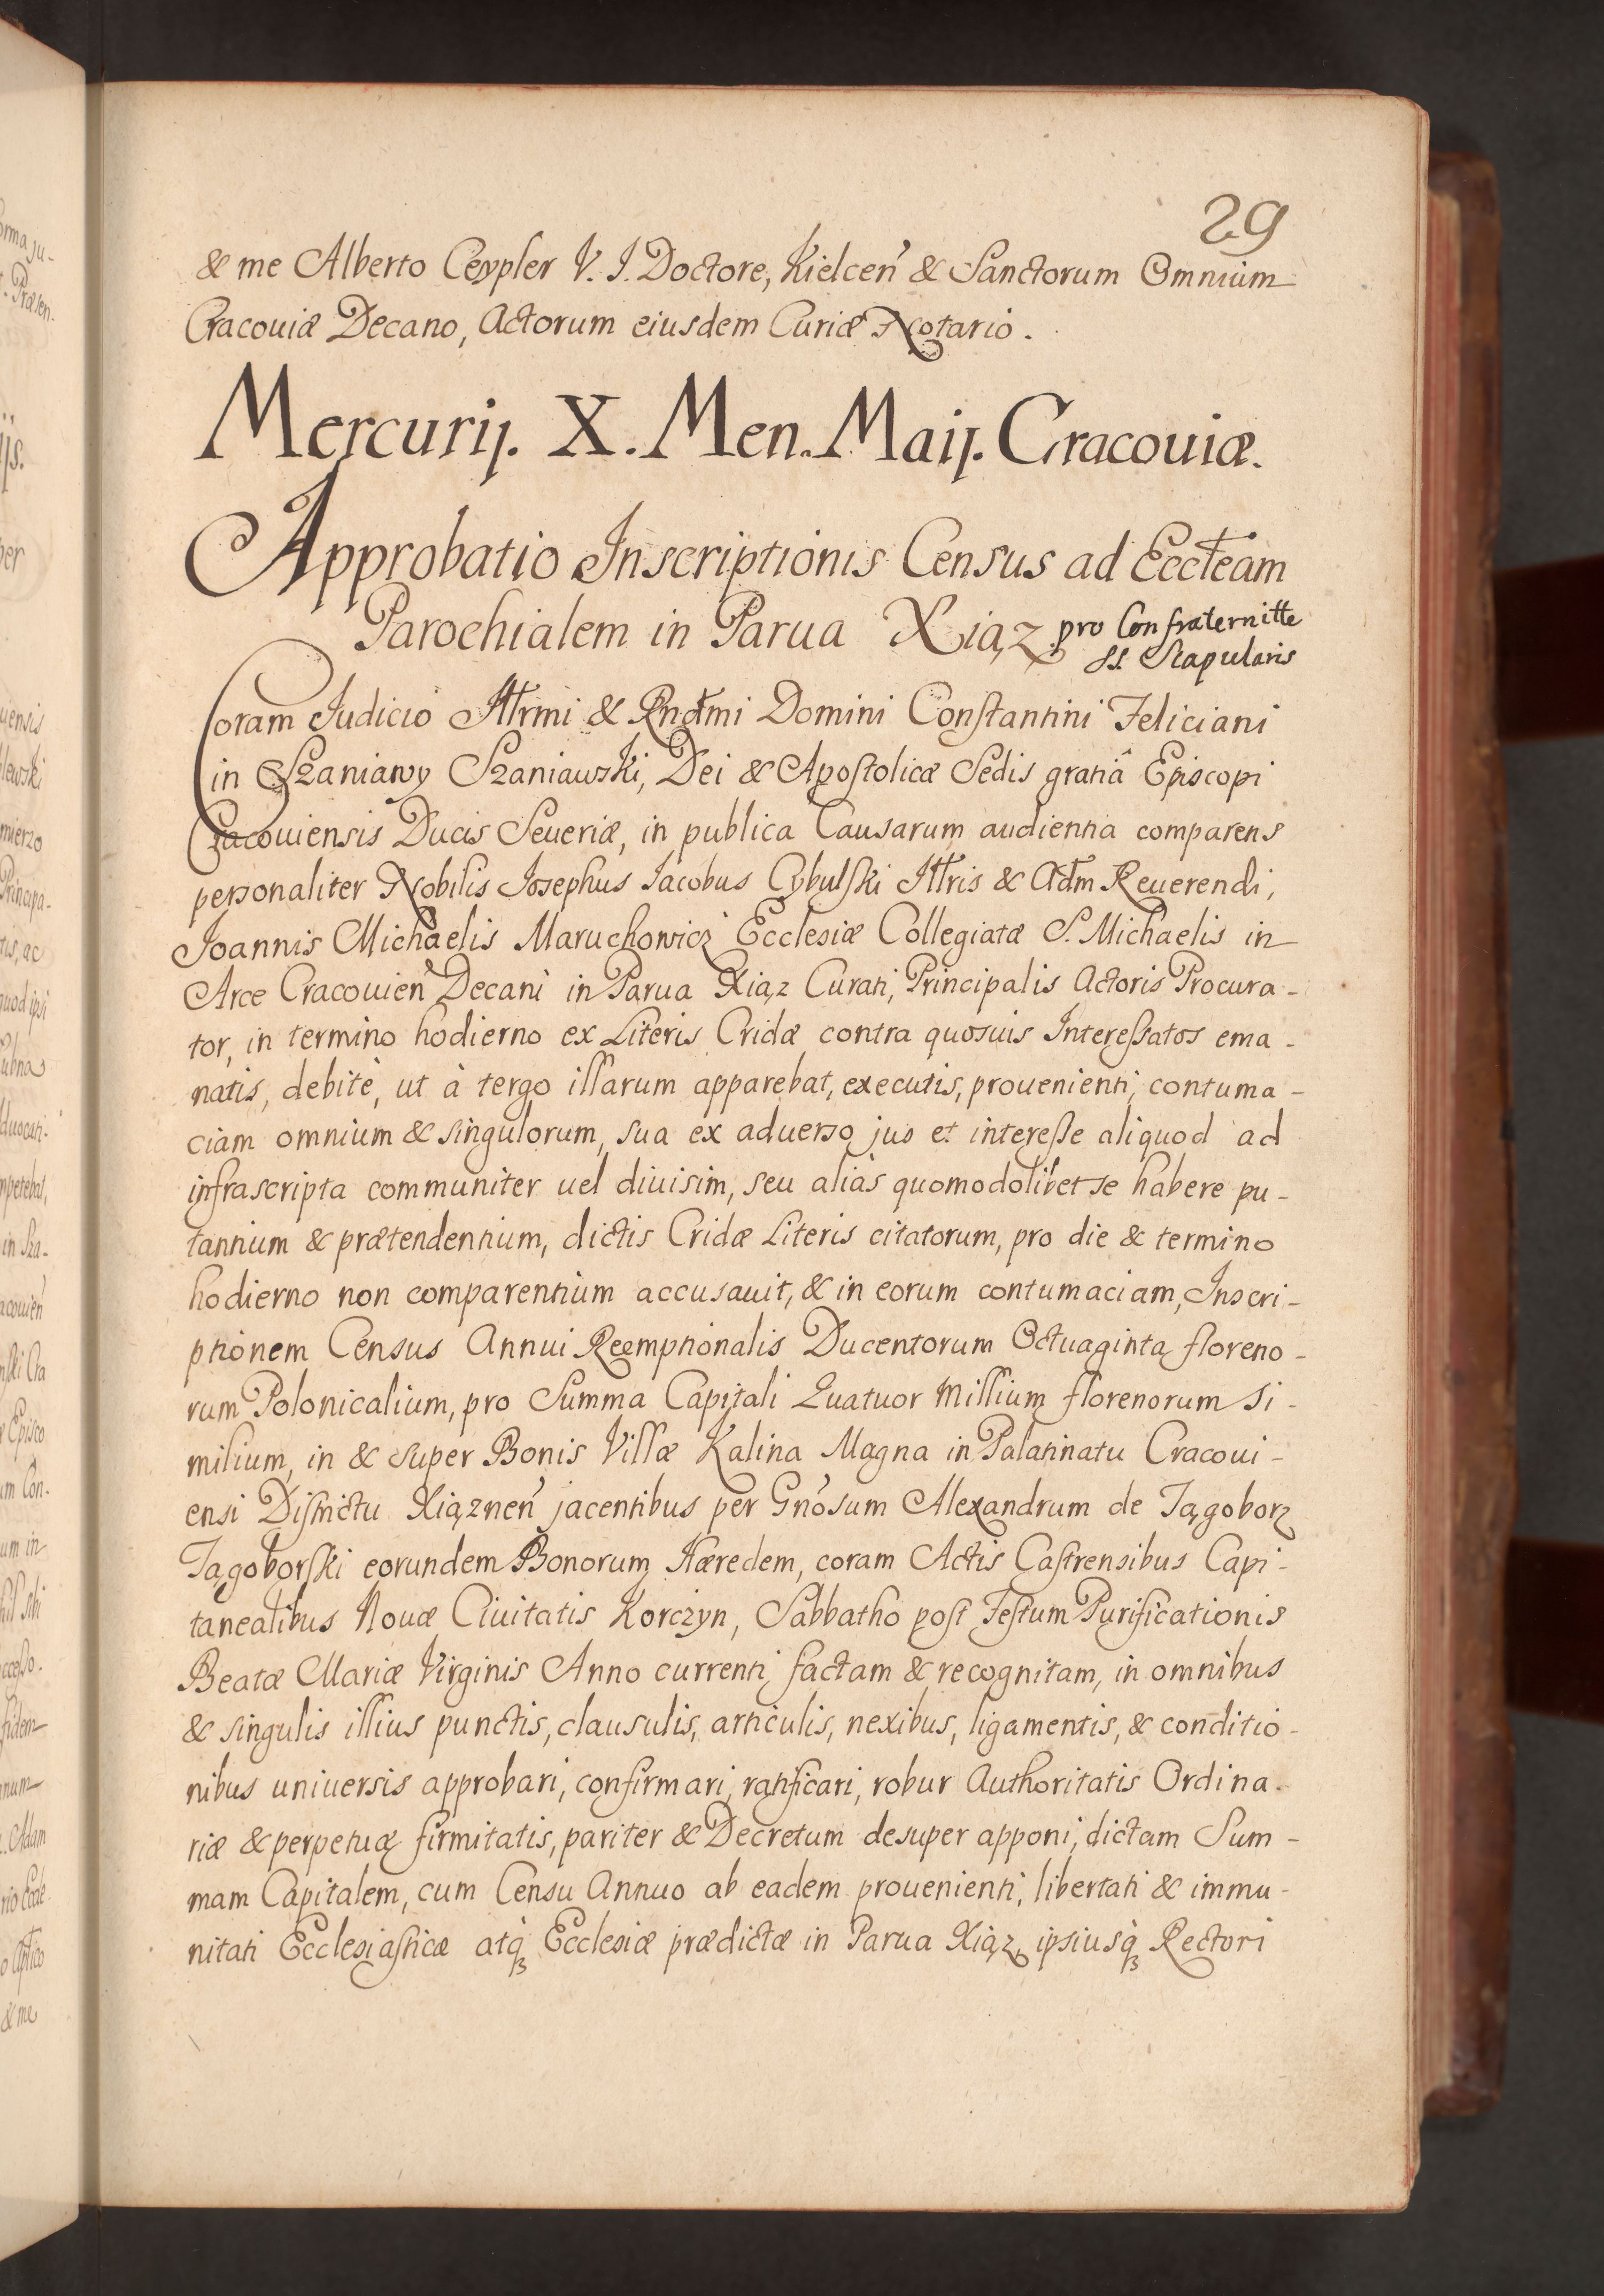 29
& me Alberto Ceypler V. I. Doctore, Kielceń & Sanctorum Omnium
Cracouiæ Decano, Actorum eiusdem Curiæ Notario.
Mercurij. X. Men. Maij. Cracouiæ.
Approbatio Inscriptionis Census ad Eccłeam
Parochialem in Parua Xiąz pro Confraternitte
SS. Scapularis
Coram Judicio Illrmi & Rndmi Domini Constantini Feliciani
in Szaniawy Szaniawski, Dei & Apostolicæ Sedis gratiâ Episcopi
Cracouiensis Ducis Seueriæ, in publica Causarum audientia comparens
personaliter Nobilis Josephus Jacobus Cybulski Illris & Adm Reuerendi,
Joannis Michaelis Maruchowicz Ecclesiæ Collegiatæ S. Michaelis in
Arce Cracouień Decani in Parua Xiąz Curati, Principalis Actoris Procura-
tor, in termino hodierno ex Literis Cridæ contra quosuis Interessatos ema-
natis, debitè, ut à tergo illarum apparebat, executis, prouenienti, contuma-
ciam omnium & singulorum, sua ex aduerso jus et interesse aliquod ad
infrascripta communiter uel diuisim, seu aliàs quomodolibet se habere pu-
tantium & prætendentium, dictis Cridæ Literis citatorum, pro die & termino
hodierno non comparentium accusauit, & in eorum contumaciam, Inscri-
ptionem Census Annui Reemptionalis Ducentorum Octuaginta floreno-
rum Polonicalium, pro Summa Capitali Quatuor Millium florenorum si-
milium, in & super Bonis Villæ Kalina Magna in Palatinatu Cracoui-
ensi Districtu Xiązneń jacentibus per Gnósum Alexandrum de Tągoborz
Tągoborski eorundem Bonorum Hæredem, coram Actis Castrensibus Capi-
tanealibus Nouæ Ciuitatis Korczyn, Sabbatho post Festum Purificationis
Beatæ Mariæ Virginis Anno currenti factam & recognitam, in omnibus
& singulis illius punctis, clausulis, articulis, nexibus, ligamentis, & conditio-
nibus uniuersis approbari, confirmari, ratificari, robur Authoritatis Ordina-
riæ & perpetuæ firmitatis, pariter & Decretum desuper apponi, dictam Sum-
mam Capitalem, cum Censu Annuo ab eadem prouenienti, libertati & immu-
nitati Ecclesiasticæ atqꝫ Ecclesiæ prædictæ in Parua Xiąz, ipsiusqꝫ Rectori